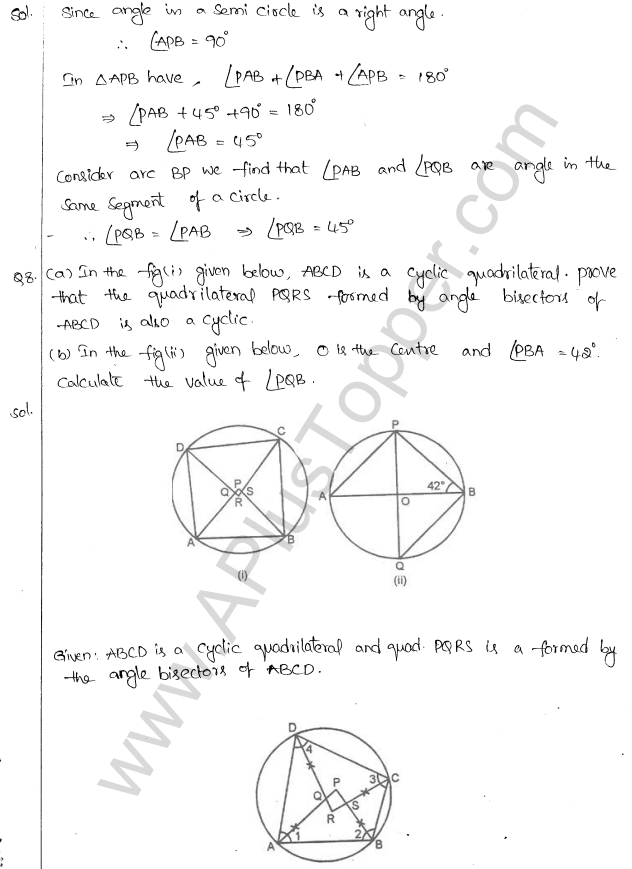 Sol. Since angle in a semi circle is a right angle.
∴ ∠APB = 90°
In △APB have, ∠PAB + ∠PBA + ∠APB = 180°
⇒ ∠PAB + 45° + 90° = 180°
⇒ ∠PAB = 45°
Consider arc BP we find that ∠PAB and ∠PQB are angle in the
same segment of a circle.
∴ ∠PQB = ∠PAB ⇒ ∠PQB = 45°
Q8. (a) In the fig(i) given below, ABCD is a cyclic quadrilateral. prove
that the quadrilateral PQRS formed by angle bisectors of
ABCD is also a cyclic.
(b) In the fig(ii) given below, O is the Centre and ∠PBA = 42°.
Calculate the value of ∠PQB.
Sol.
D C P
Q P S R A O 42° B
A B
Q
(i) (ii)
Given: ABCD is a cyclic quadrilateral and quad. PQRS is a formed by
the angle bisectors of ABCD.
D
4
3 C
P
Q S
R
A 1 2 B
www.APlusTopper.com